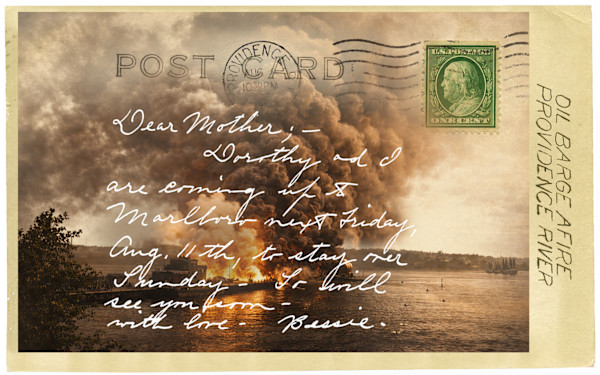 POST CARD
PROVIDENCE
AUG
10 30 PM
U.S. POSTAGE
ONE CENT
Dear Mother; —
Dorothy ad I
are coming up to
Marlboro next Friday,
Aug. 11th, to stay over
Sunday — So will
see you soon —
with love — Bessie.
OIL BARGE AFIRE
PROVIDENCE RIVER